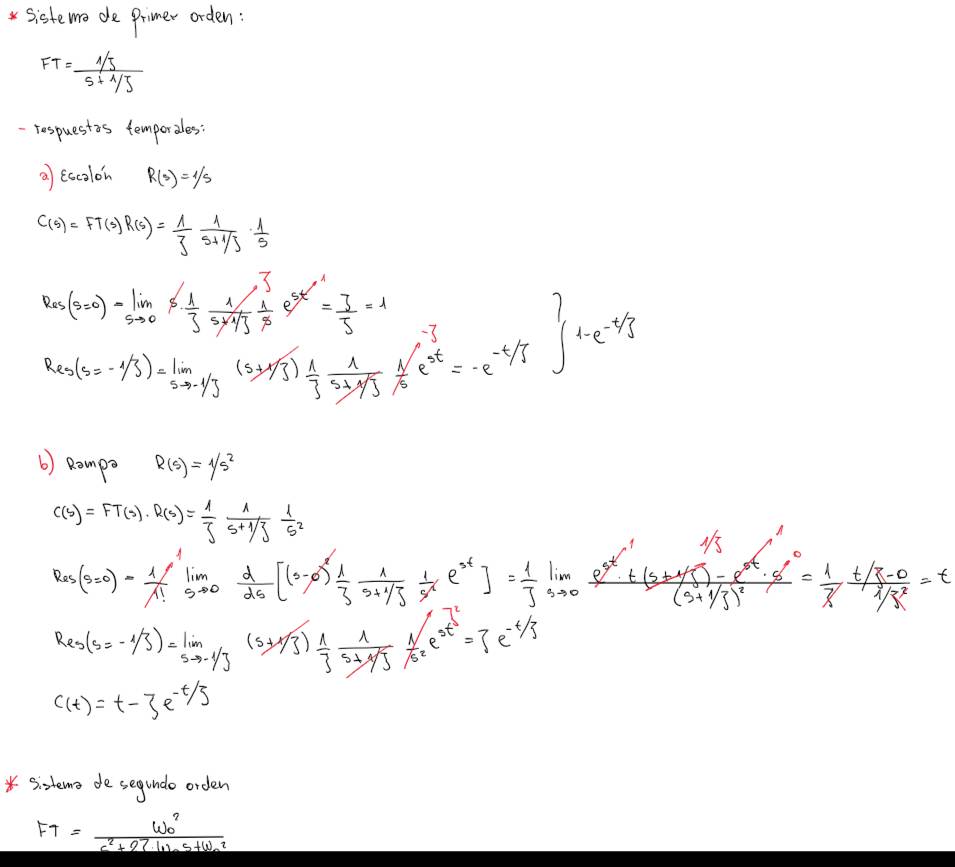 * Sistema de primer orden:
FT = (1/ζ)/(s + 1/ζ)
- respuestas temporales:
a) Escalón R(s) = 1/s
C(s) = FT(s) R(s) = 1/ζ 1/(s+1/ζ) · 1/s
Res(s=0) = lim s→0 s · 1/ζ 1/(s+1/ζ) 1/s e^st = ζ/ζ = 1
Res(s=-1/ζ) = lim s→-1/ζ (s+1/ζ) 1/ζ 1/(s+1/ζ) 1/s e^st = -e^-t/ζ } 1-e^-t/ζ
b) Rampa R(s) = 1/s²
C(s) = FT(s) · R(s) = 1/ζ 1/(s+1/ζ) 1/s²
Res(s=0) = 1/1! lim s→0 d/ds [(s-0)² 1/ζ 1/(s+1/ζ) 1/s² e^st] = 1/ζ lim s→0 (e^st · t (s+1/ζ) - e^st · s)/(s+1/ζ)² = 1/ζ (t/ζ-0)/(1/ζ²) = t
Res(s=-1/ζ) = lim s→-1/ζ (s+1/ζ) 1/ζ 1/(s+1/ζ) 1/s² e^st = ζ e^-t/ζ
C(t) = t - ζ e^-t/ζ
* Sistema de segundo orden
FT = ω₀²/(s²+2ζ·ω₀s+ω₀²)